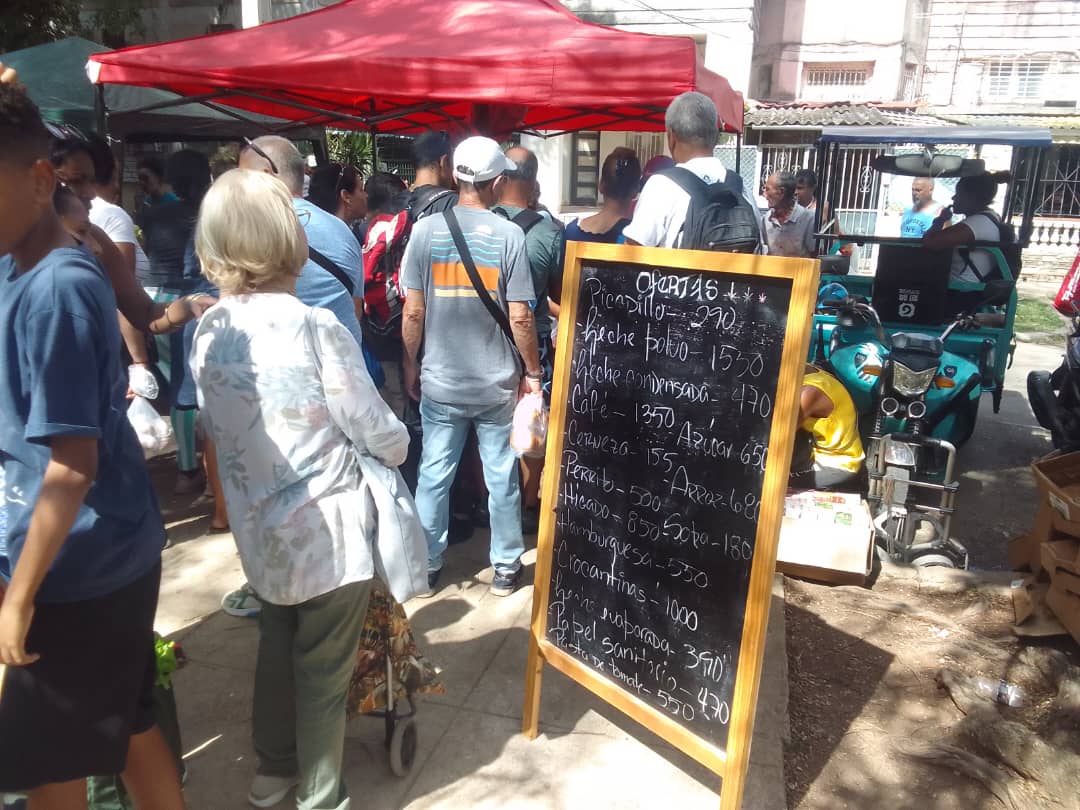 OFERTAS
Picadillo - 290
-Leche polvo - 1550
-Leche condensada - 470
-Café - 1350
Azúcar 650
-Cerveza - 155
-Arroz - 680
-Perrito - 590
-Higado - 850
Sopa - 180
-Hamburguesa - 550
-Crocantinas - 1000
-Leche evaporada - 390
-Papel sanitario - 470
-Pasta de tomate - 550